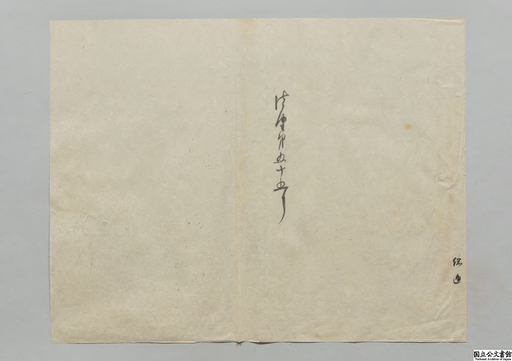 法律第五十五号
国立公文書館
National Archives of Japan